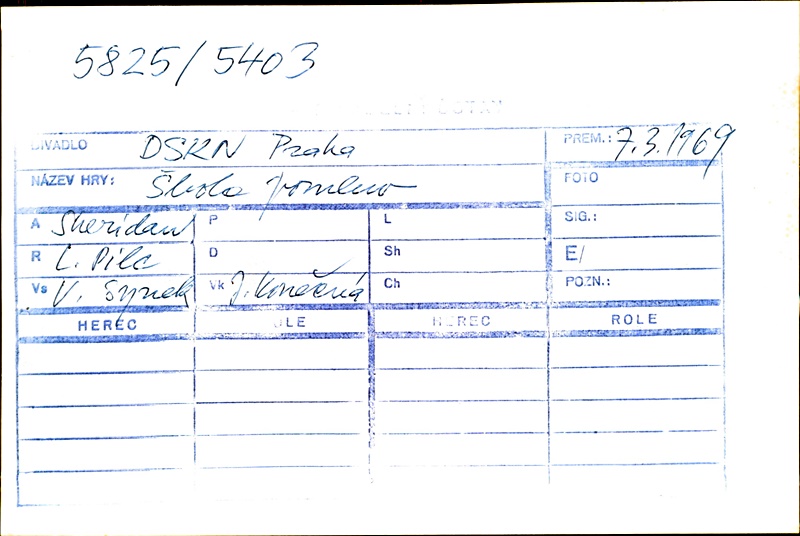 5825/5403
DIVADLO DSKN Praha PREM.: 7.3.1969
NÁZEV HRY: Škola pomluv FOTO
A Sheridan P L SIG.:
R L. Pilc D Sh E/
Vs V. Synek Vk J. Konečná Ch POZN.:
HEREC ROLE HEREC ROLE